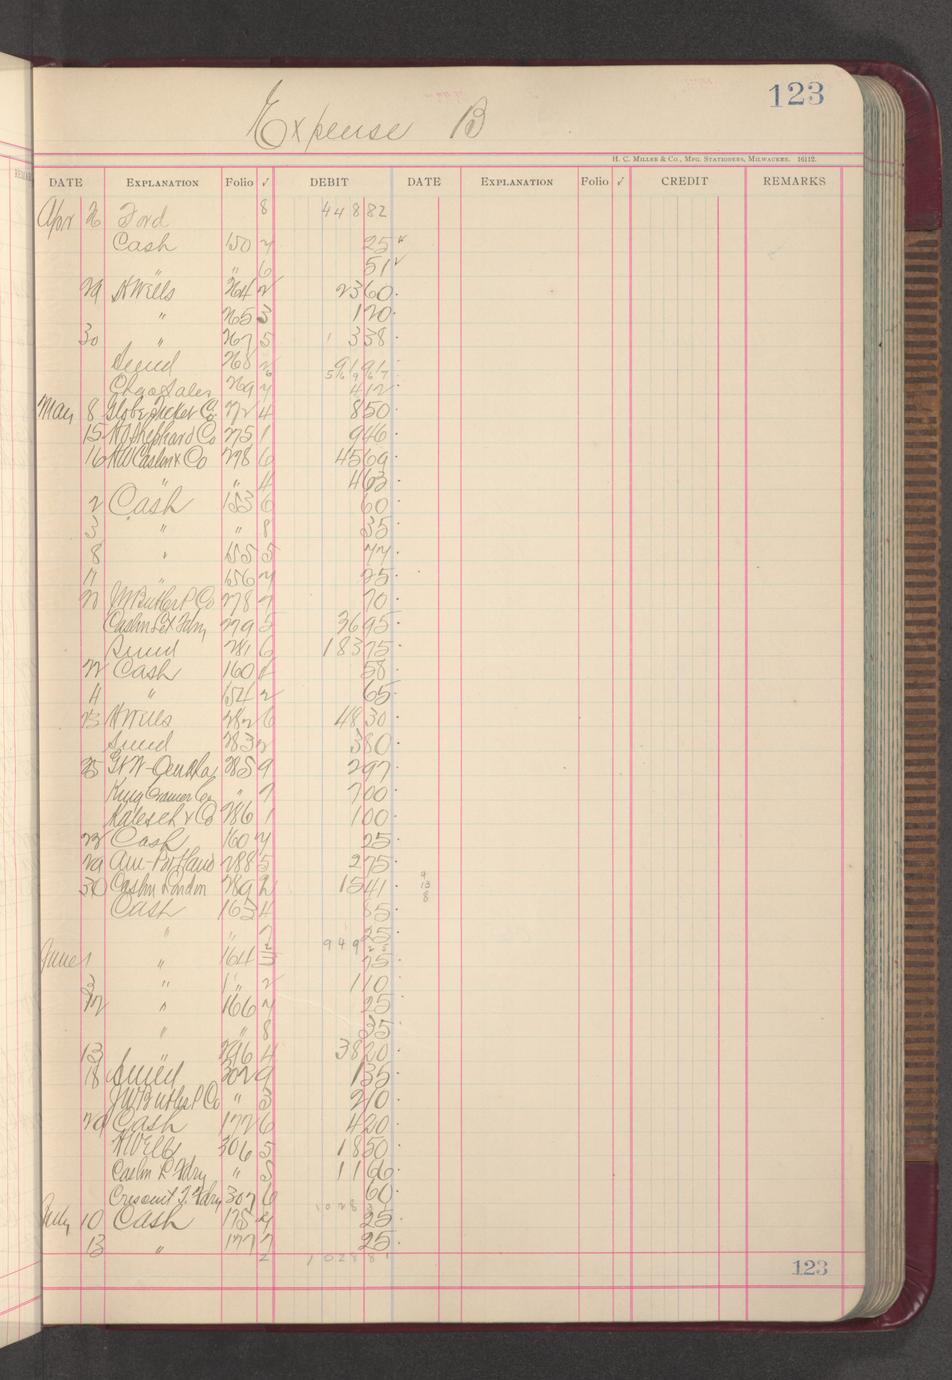 123
Expense B
H. C. Miller & Co., Mfg. Stationers, Milwaukee. 16112.
DATE EXPLANATION Folio √ DEBIT DATE EXPLANATION Folio √ CREDIT REMARKS
Apr 26 Ford 8 448 82
Cash 150 7 25
" 6 51
29 H Wells 264 2 23 60
" 265 3 1 20
30 " 267 5 3 38
Sund 268 2 91 91
Chgo Sales 269 7 4 12
May 8 Globe Ticket Co 272 4 8 50
15 275 1 9 46
16 H W Caslon & Co 278 6 45 69
" " 4 4 63
2 Cash 153 6 60
3 " " 8 35
8 " 155 5 77
11 " 156 7 25
21 J W Butler P Co 278 7 70
Caslon Let Fdry 279 5 36 95
Sund 281 6 183 75
22 Cash 160 58
4 " 154 2 65
23 H Wells 282 6 48 30
Sund 283 2 3 80
25 285 9 2 97
King Cramer Co " 7 7 00
286 1 1 00
23 Cash 160 4 25
29 288 5 2 75
30 Caslon London 289 2 15 41
Cash 163 4 85
" " 7 25
949
June 1 " 164 75
" " 2 1 10
12 " 166 7 25
" " 8 35
13 296 4 38 20
18 Sund 302 9 1 35
J W Butler P Co " 3 2 10
20 Cash 172 6 4 20
H Wells 306 5 18 50
Caslon L Fdry " 5 11 66
Crescent T. Fdry 307 6 60
July 10 Cash 175 4 25
13 " 177 7 25
2 1028 81
123